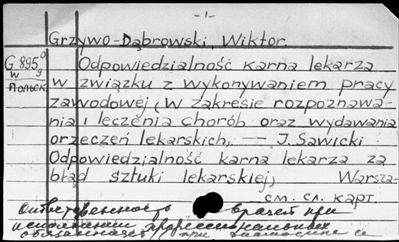 -1-
Grzywo-Dąbrowski, Wiktor.
G 895⁰
W 9
Польск.
Odpowiedzialność karna lekarza
w związku z wykonywaniem pracy
zawodowej (w zakresie rozpoznawa-
nia i leczenia chorób oraz wydawania
orzeczeń lekarskich, — J. Sawicki
Odpowiedzialność karna lekarza za
błąd sztuki lekarskiej, Warsza-
см. сл. карт.
Ответственность врачей при
исполнении профессиональных
обязанностей при диагнозе и